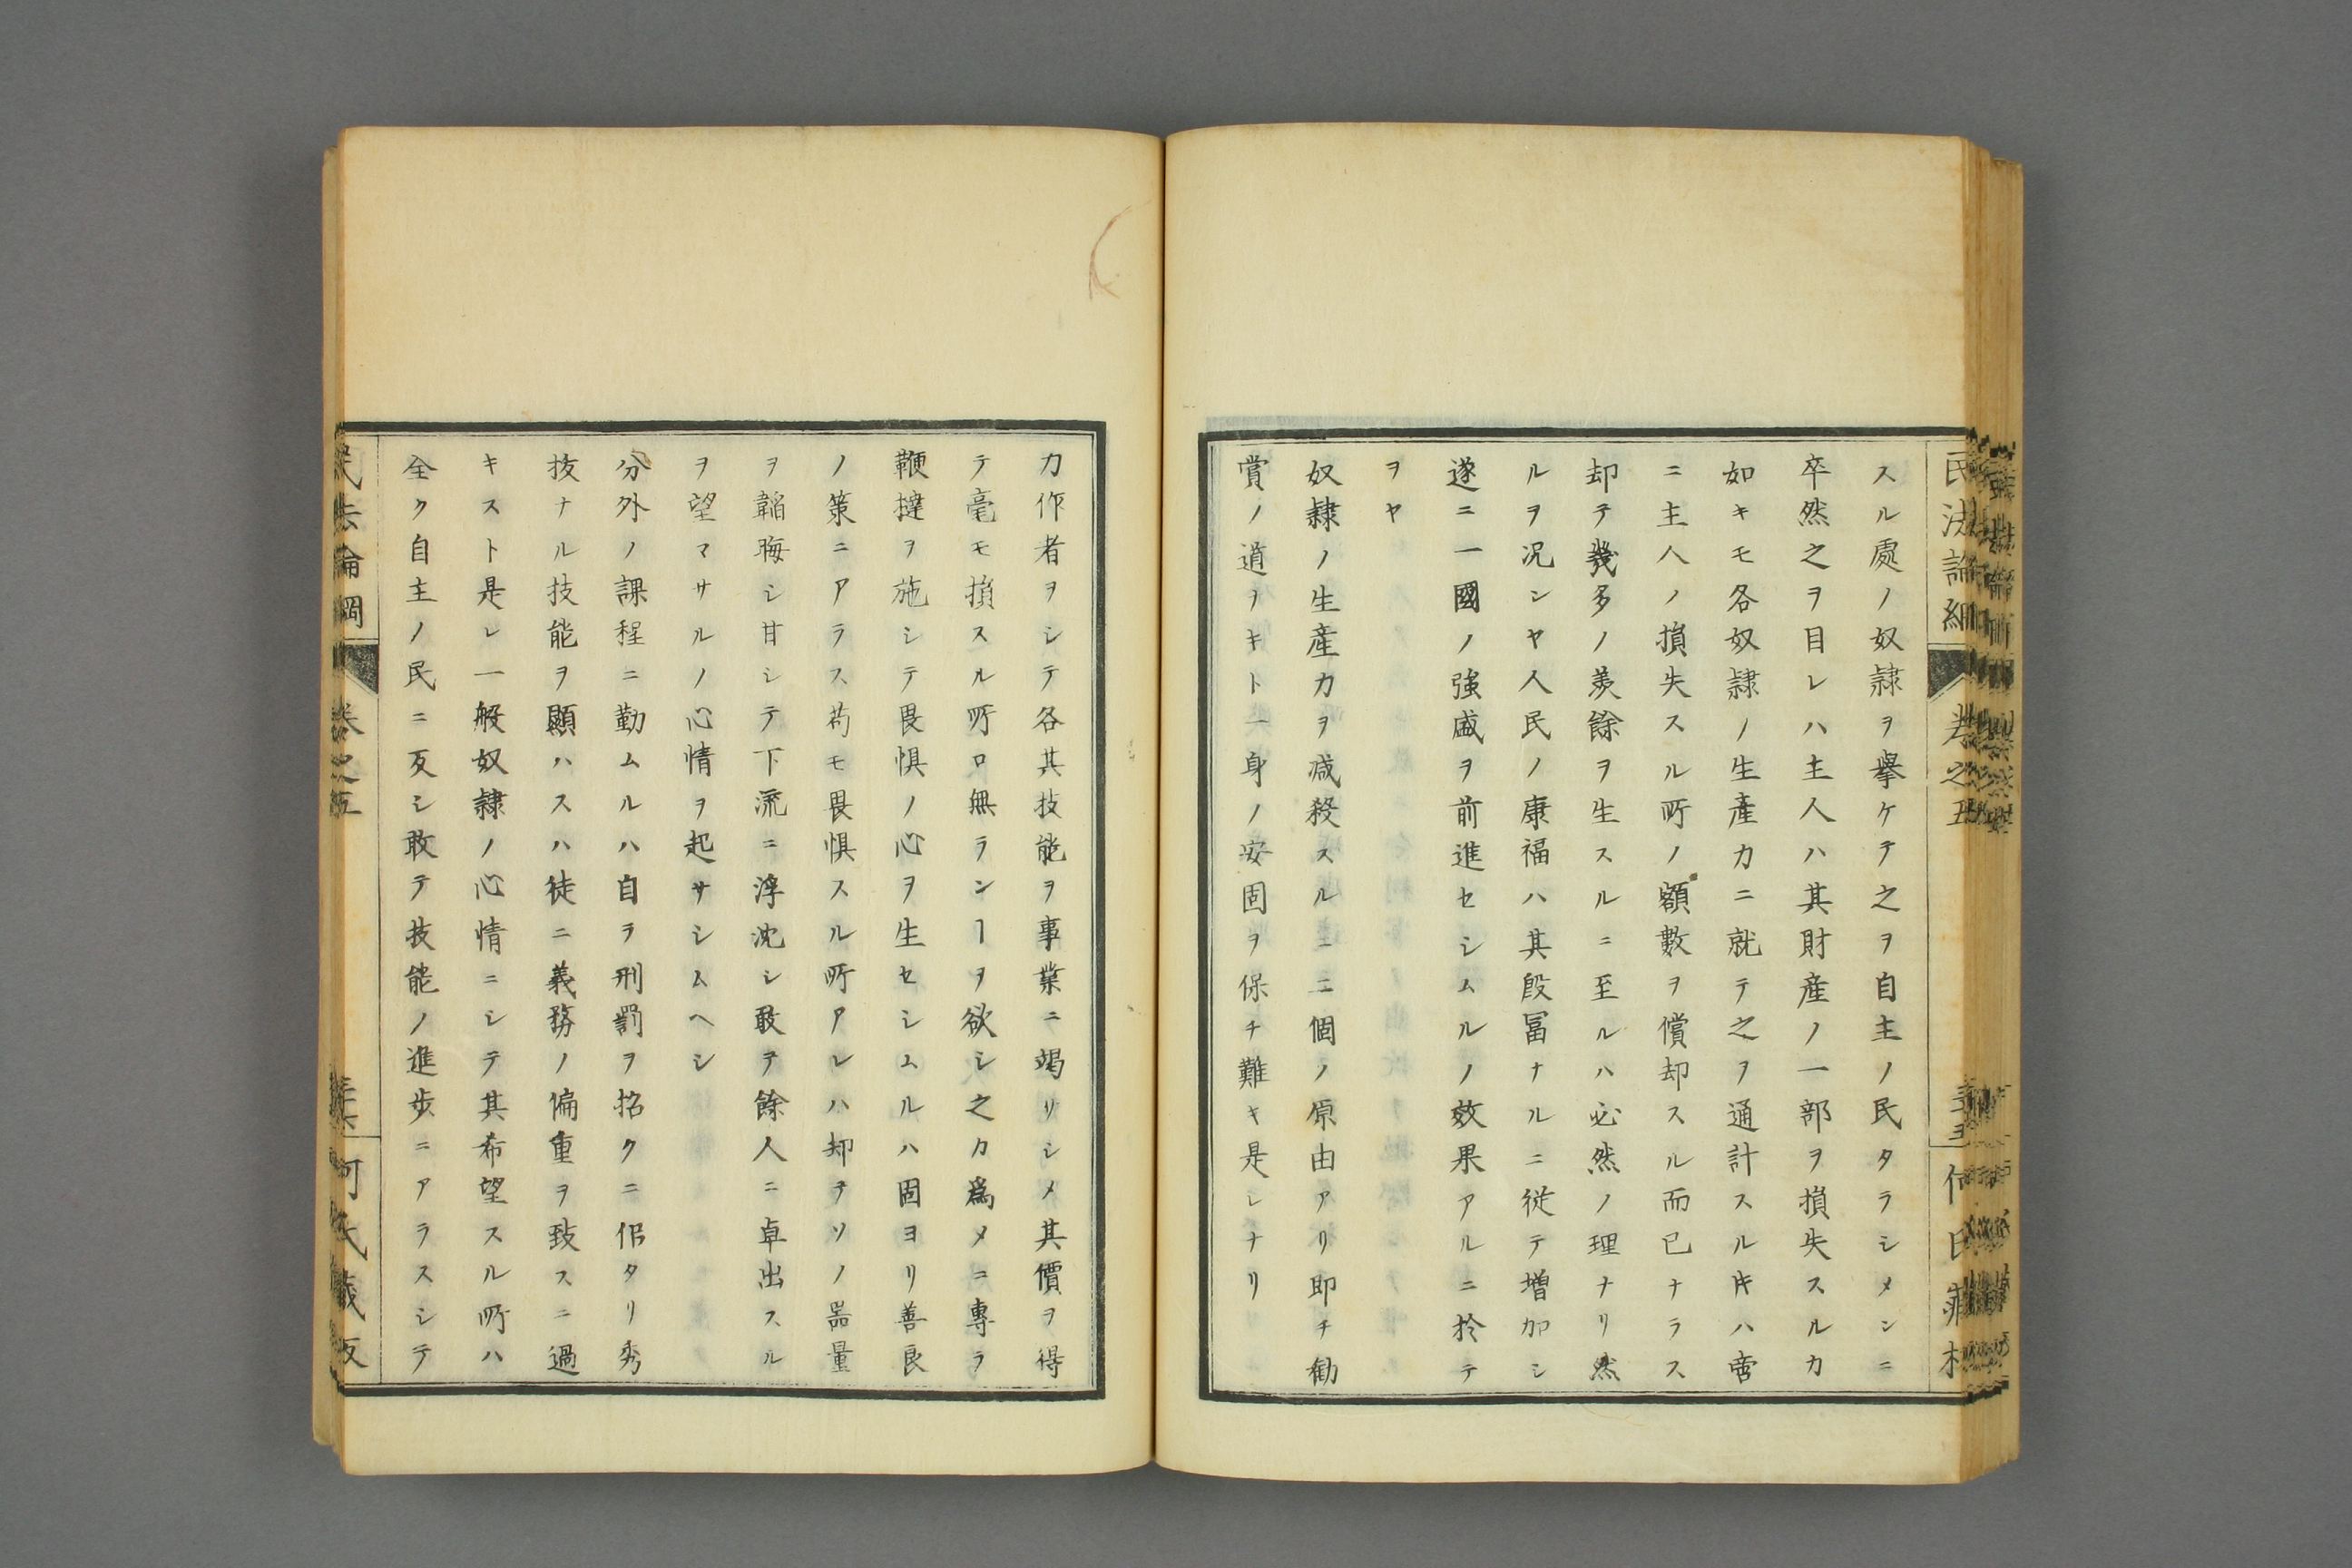 スル處ノ奴隷ヲ擧ケテ之ヲ自主ノ民タラシメンニ
卒然之ヲ目レハ主人ハ其財産ノ一部ヲ損失スルカ
如キモ各奴隷ノ生産力ニ就テ之ヲ通計スル片ハ啻
ニ主人ノ損失スル所ノ額數ヲ償却スル而已ナラス
却テ幾多ノ羨餘ヲ生スルニ至ルハ必然ノ理ナリ然
ルヲ况ンヤ人民ノ康福ハ其殷冨ナルニ從テ增加シ
遂ニ一國ノ強盛ヲ前進セシムルノ效果アルニ於テ
ヲヤ
奴隷ノ生産力ヲ减殺スルニ二個ノ原由アリ即チ勧
賞ノ道ヲキト一身ノ安固ヲ保チ難キ是レナリ
力作者ヲシテ各其技能ヲ事業ニ竭リシメ其價ヲ得
テ毫モ損スル所ロ無ランヿヲ欲シ之カ爲メニ專ラ
鞭撻ヲ施シテ畏惧ノ心ヲ生セシムルハ固ヨリ善良
ノ策ニアラス苟モ畏惧スル所アレハ却テソノ器量
ヲ韜晦シ甘シテ下流ニ浮沈シ敢テ餘人ニ卓出スル
ヲ望マサルノ心情ヲ起サシムヘシ
分外ノ課程ニ勤ムルハ自ヲ刑罰ヲ招クニ似タリ秀
抜ナル技能ヲ顯ハスハ徒ニ義務ノ偏重ヲ致スニ過
キスト是レ一般奴隷ノ心情ニシテ其希望スル所ハ
全ク自主ノ民ニ反シ敢テ技能ノ進歩ニアラスシテ
民法論綱
卷之五
何氏藏版